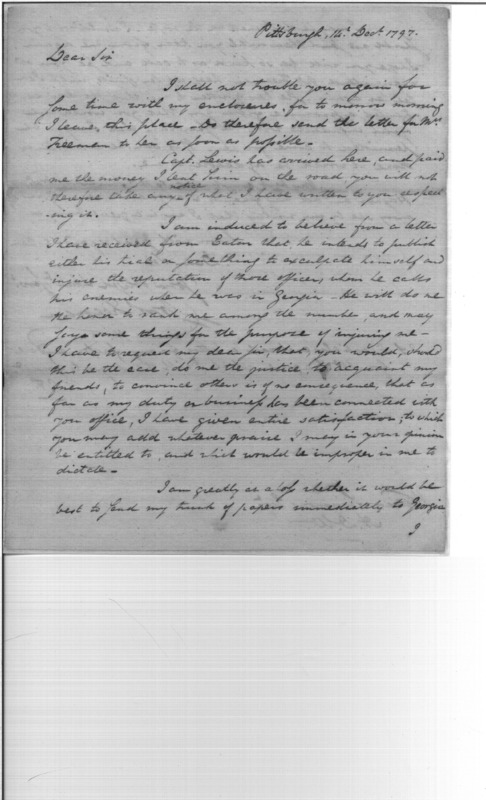 Pittsburgh, 14th Decr. 1797.
Dear Sir
I shall not trouble you again for
some time with my enclosures, for to morrow morning
I leave, this place – Do therefore send the letter for Mrs.
Freeman to her as soon as possible.
Capt. Lewis has arrived here, and paid
me the money I lent him on the road you will not
notice
therefore take any of what I have written to you respect
ing it.
I am induced to believe from a letter
I have received from Eaton that he intends to publish
either his trial or something to exculpate himself and
injure the reputation of those officers, whom he calls
his enemies when he was in Georgia – He will do me
the honor to rank me among the number, and may
say some things for the purpose of injuring me –
I have to request my dear sir, that, you would, should
this be the case, do me the justice, to acquaint my
friends, to convince others is of no consequence, that as
far as my duty or business has been connected with
your office, I have given entire satisfaction; to which
you may add whatever praise I may in your opinion
be entitled to, and which would be improper in me to
dictate –
I am greatly at a loss whether it would be
best to send my trunk of papers immediately to Georgia
I